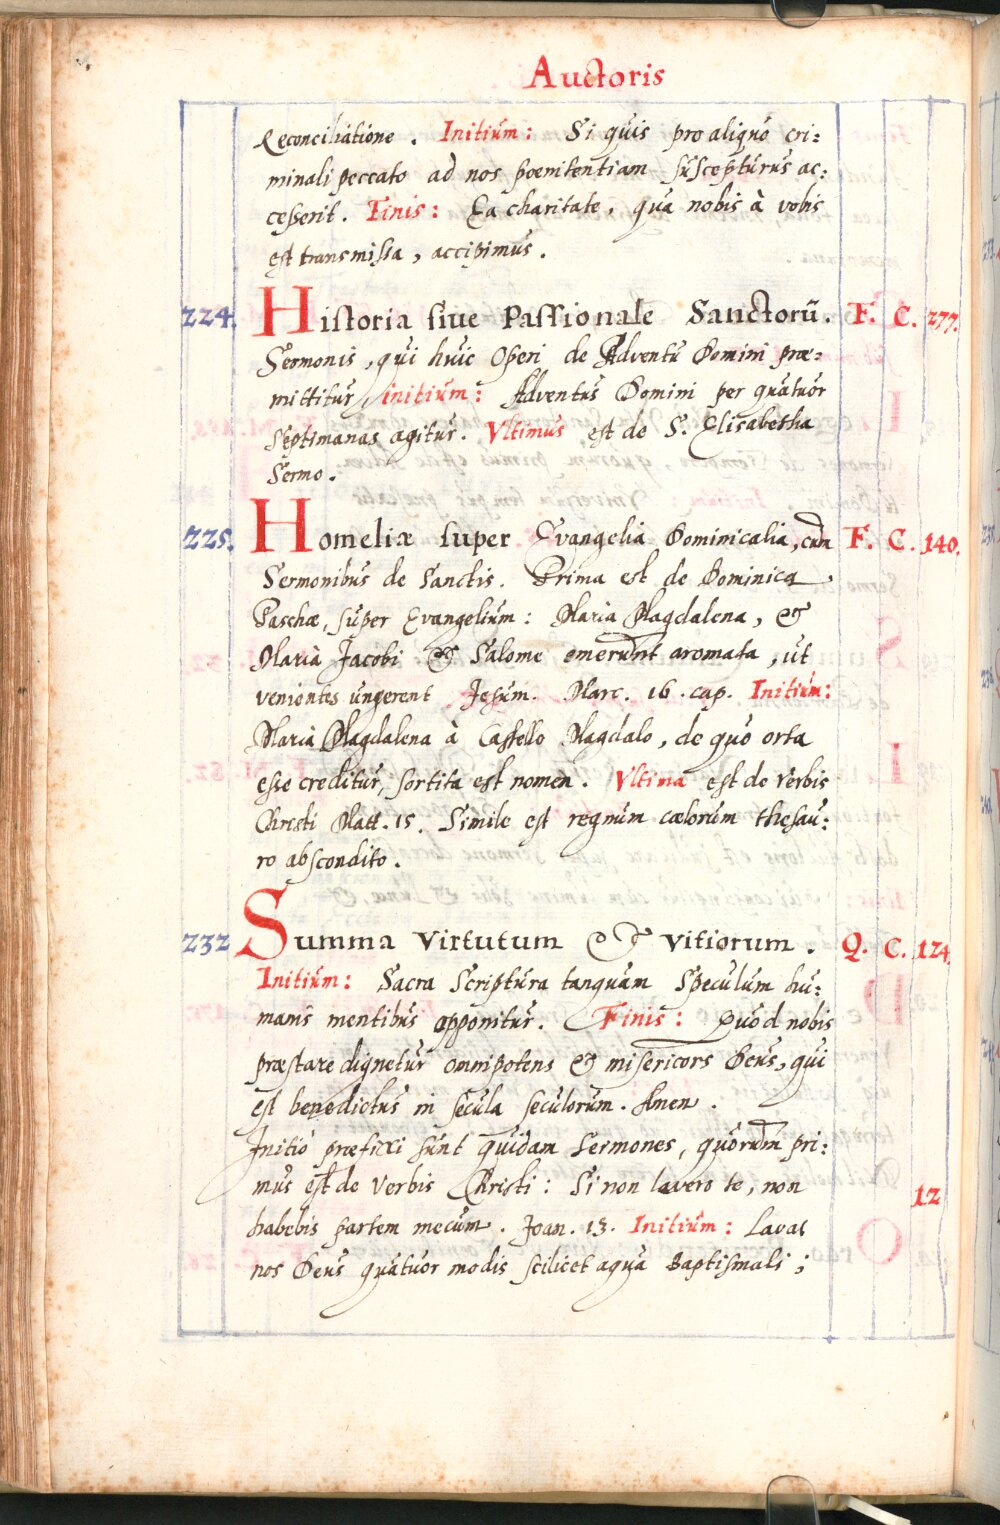 Auctoris
Reconciliatione. Initium: Si quis pro aliquo cri:
minali peccato ad nos poenitentiam suscepturus ac:
cesserit. Finis: Ea charitate, qua nobis à vobis
est transmissa, accipimus.
224. Historia siue Passionale Sanctorū. F. C. 277.
Sermonis, qui huic Operi de Adventu Domini præ:
mittitur, initium: Adventus Domini per quatuor
septimanas agitur. Vltimus est de S. Elisabetha
Sermo.
225. Homeliæ super Evangelia Dominicalia, cum F. C. 140.
Sermonibus de Sanctis. Prima est de Dominica
Paschæ, super Evangelium: Maria Magdalena, &
Maria Jacobi & Salome emerunt aromata, ut
venientes ungerent Jesum. Marc. 16. cap. Initium:
Maria Magdalena à Castello Magdalo, de quo orta
esse creditur, sortita est nomen. Vltima est de verbis
Christi Matt. 15. Simile est regnum cælorum thesau:
ro abscondito.
232 Summa Virtutum & Vitiorum. Q. C. 124.
Initium: Sacra Scriptura tanquam Speculum hu:
manis mentibus apponitur. Finis: Quod nobis
præstare dignetur omnipotens & misericors Deus, qui
est benedictus in secula seculorum. Amen.
Initio præfixi sunt quidam Sermones, quorum pri:
mus est de verbis Christi: Si non lavero te, non 12
habebis partem mecum. Joan. 13. Initium: Lavat
nos Deus quatuor modis scilicet aqua Baptismali;